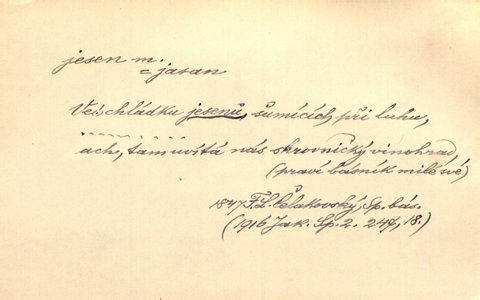 jesen m.
= jasan
Ve chládku jesenů, šumících při luhu,
. . . . . . . . . . . .
ach, tam uvítá nás skrovnický vinohrad,
(praví básník milé své)
1847 F. L. Čelakovský, Sp. bás.
(1916 Jak. Sp. 2. 247, 18.)